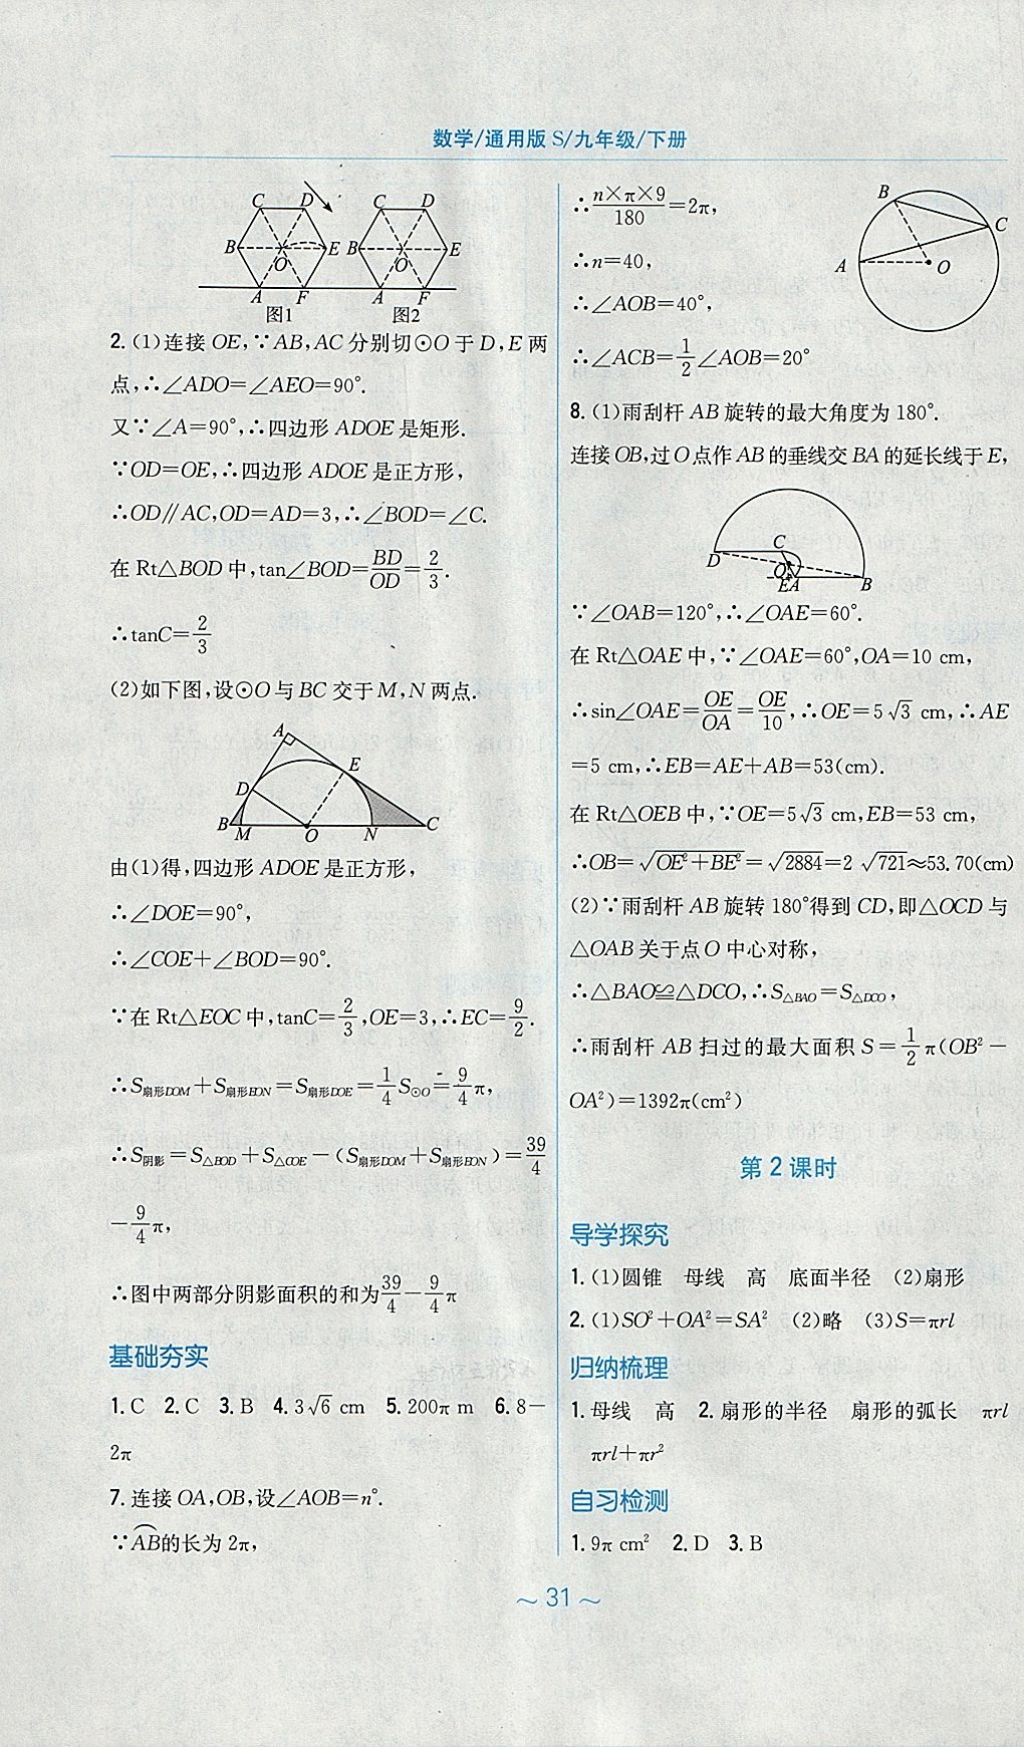 数学/通用版 S/九年级/下册
C D C D
B O E B O E
A F A F
图1 图2
2. (1)连接 OE,∵AB,AC 分别切⊙O 于 D,E 两
点,∴∠ADO=∠AEO=90°.
又∵∠A=90°,∴四边形 ADOE 是矩形.
∵OD=OE,∴四边形 ADOE 是正方形,
∴OD∥AC,OD=AD=3,∴∠BOD=∠C.
在 Rt△BOD 中,tan∠BOD=BD/OD=2/3.
∴tanC=2/3
(2)如下图,设⊙O 与 BC 交于 M,N 两点.
A
E
D
B M O N C
由(1)得,四边形 ADOE 是正方形,
∴∠DOE=90°,
∴∠COE+∠BOD=90°.
∵在 Rt△EOC 中,tanC=2/3,OE=3,∴EC=9/2.
∴S扇形DOM+S扇形EON=S扇形DOE=1/4S⊙O=9/4π,
∴S阴影=S△BOD+S△COE-(S扇形DOM+S扇形EON)=39/4
-9/4π,
∴图中两部分阴影面积的和为39/4-9/4π
基础夯实
1. C 2. C 3. B 4. 3√6 cm 5. 200π m 6. 8-
2π
7. 连接 OA,OB,设∠AOB=n°.
∵A͡B的长为 2π,
∴n×π×9/180=2π,
∴n=40,
∴∠AOB=40°,
∴∠ACB=1/2∠AOB=20°
B
C
A O
8. (1)雨刮杆 AB 旋转的最大角度为 180°.
连接 OB,过 O 点作 AB 的垂线交 BA 的延长线于 E,
C
D
O
E A B
∵∠OAB=120°,∴∠OAE=60°.
在 Rt△OAE 中,∵∠OAE=60°,OA=10 cm,
∴sin∠OAE=OE/OA=OE/10,∴OE=5√3 cm,∴AE
=5 cm,∴EB=AE+AB=53(cm).
在 Rt△OEB 中,∵OE=5√3 cm,EB=53 cm,
∴OB=√(OE²+BE²)=√2884=2√721≈53.70(cm)
(2)∵雨刮杆 AB 旋转 180°得到 CD,即△OCD 与
△OAB 关于点 O 中心对称,
∴△BAO≌△DCO,∴S△BAO=S△DCO,
∴雨刮杆 AB 扫过的最大面积 S=1/2π(OB²-
OA²)=1392π(cm²)
第 2 课时
导学探究
1. (1)圆锥 母线 高 底面半径 (2)扇形
2. (1)SO²+OA²=SA² (2)略 (3)S=πrl
归纳梳理
1. 母线 高 2. 扇形的半径 扇形的弧长 πrl
πrl+πr²
自习检测
1. 9π cm² 2. D 3. B
~ 31 ~